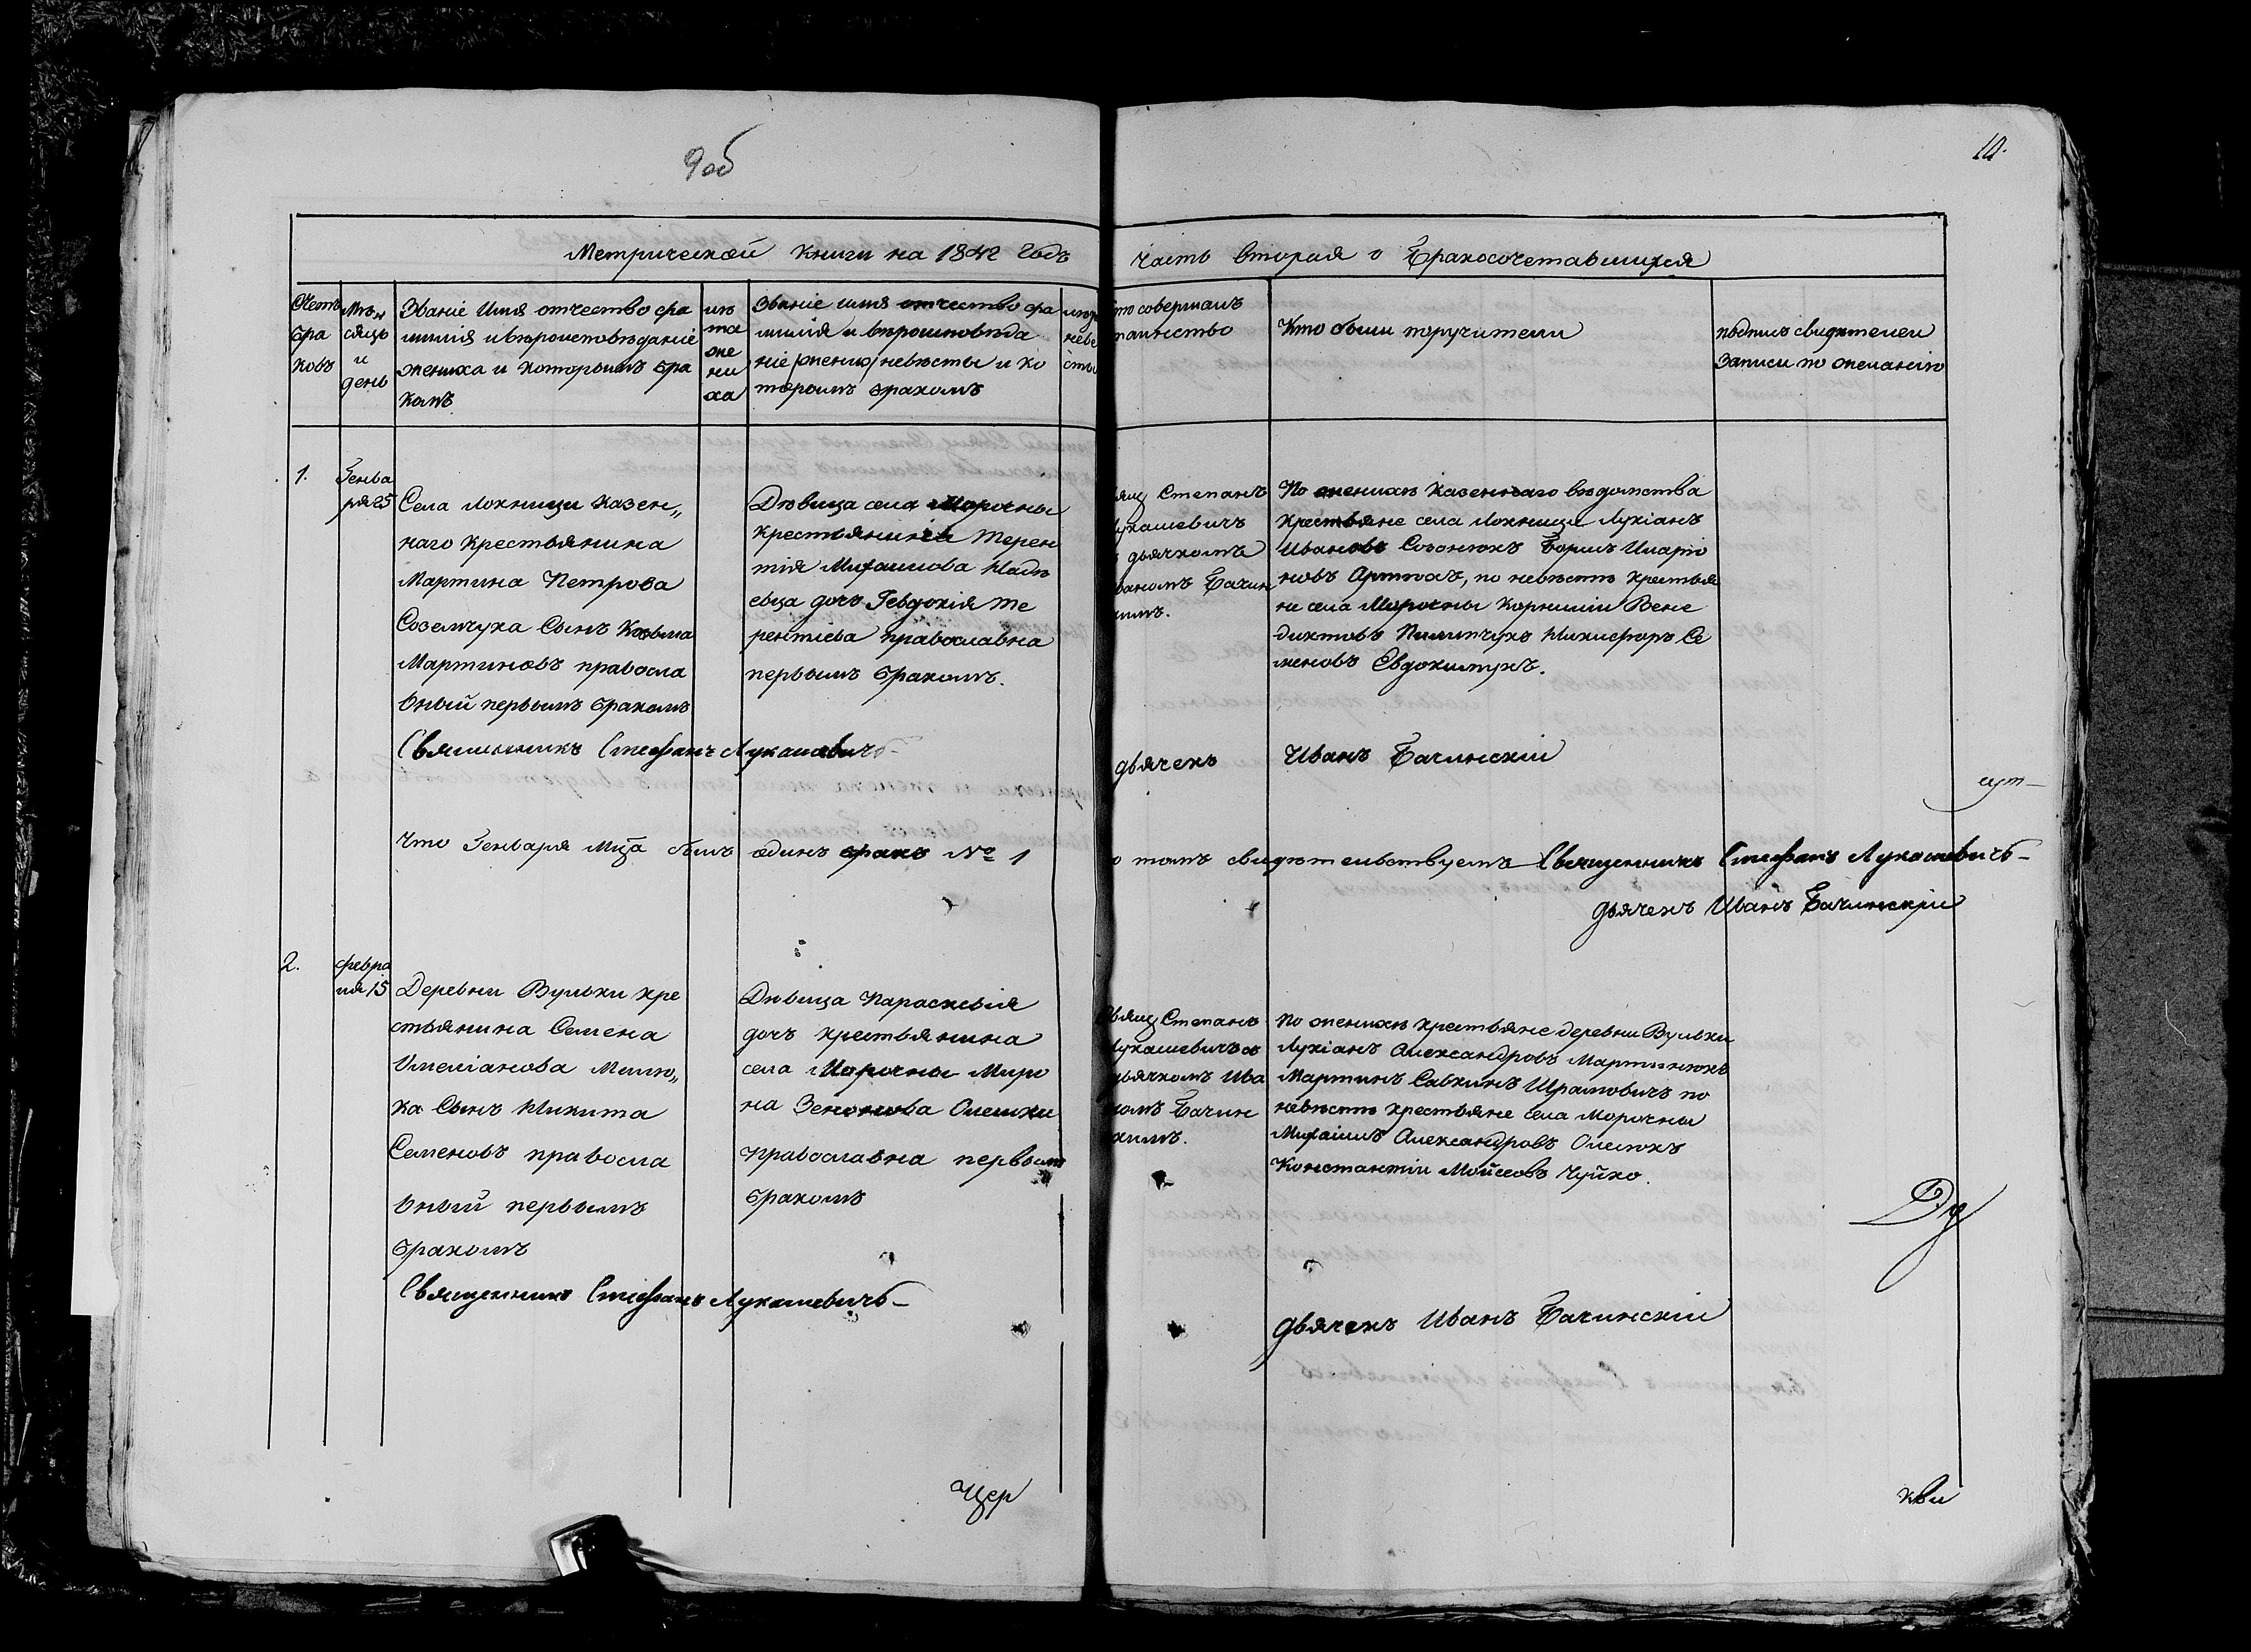 9об
10.
Метрической книги на 1842 годъ
часть вторая о Бракосочетавшихся
Счетъ
бра
ковъ
Мѣ„
сяцъ
и
день
Званіе Имя отчество фа
милія и вѣроисповѣданіе
жениха и которымъ бра
комъ
лѣ
та
же
ни
ха
Званіе имя отчество фа
милия и вѣроисповѣда
ніе невѣсты и ко
торымъ бракомъ
неве
сты
то совершалъ
таинство
Кто были поручители
подпись свидѣтелей
Записи по желанію
1.
Генва
ря 25
Села Локницы казен„
наго крестьянина
Мартина Петрова
Созончука Сынъ Козьма
Мартиновъ правосла
вный первымъ бракомъ
Дѣвица села Морочны
крестьянина Терен
тія Михаилова
дочь Гевдокія Те
рентіева православна
первымъ бракомъ.
Степанъ
Лукашевичъ
дьячкомъ
ваномъ Бачин
кимъ.
По женихѣ казеннаго вѣдомства
крестьяне села Локницы Лукіанъ
Ивановъ Созонюкъ Борисъ Иларіо
новъ по невѣстѣ крестья
не села Морочны Корнилій Вене
диктовъ Пилипчукъ Никифоръ Се
меновъ Евдокимчукъ.
Священникъ Стефанъ Лукашевичъ
дьячекъ Иванъ Бачинскій
Что Генваря Мца былъ одинъ бракъ № 1
о томъ свидѣтельствуемъ Священникъ Стефанъ Лукашевичъ
дьячекъ Иванъ Бачинскій
2.
Февра
ля 15
Деревни Вульки кре
стьянина Семена
Омеліанова
ка Сынъ Никита
Семеновъ правосла
вный первымъ
бракомъ
Дѣвица Параскевія
дочь крестьянина
села Морочны Миро
на Зенонова
православна первымъ
бракомъ
Свящ Степанъ
Лукашевичъ съ
дьячкомъ Ива
номъ Бачин
скимъ.
По женихѣ крестьяне деревни Вульки
Лукіанъ Александровъ Мартинюкъ
Мартинъ Савкинъ по
невѣстѣ крестьяне села Морочны
Михаилъ Александровъ Олешокъ
Константіи Мойсеовъ Чуйко.
Священникъ Стефанъ Лукашевичъ
дьячекъ Иванъ Бачинскій
Цер
кви